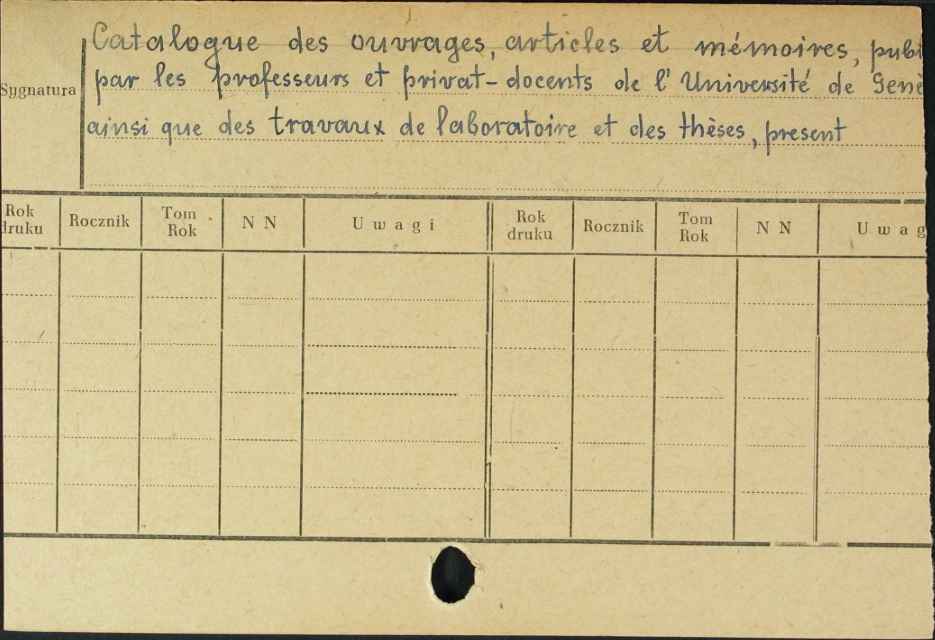 Catalogue des ouvrages, articles et mémoires, publ
Sygnatura
par les professeurs et privat-docents de l'Université de Genè
ainsi que des travaux de laboratoire et des thèses, present
Rok druku Rocznik Tom Rok N N Uwagi Rok druku Rocznik Tom Rok N N Uwag